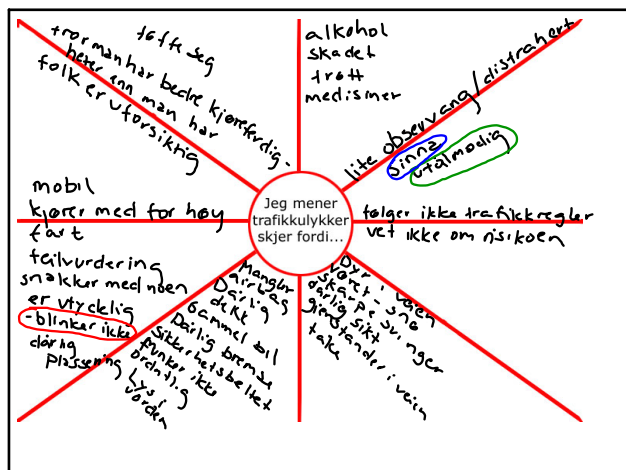 Jeg mener
trafikkulykker
skjer fordi...
tøffe seg
tror man har bedre kjøreferdig-
heter enn man har
folk er uforsiktig
alkohol
skadet
trøtt
medisiner
lite observang/distrahert
sinna
utålmodig
følger ikke trafikkregler
vet ikke om risikoen
Dyr i veien
været - snø
skarpe svinger
dårlig sikt
gjenstander i veien
tåke
Mangler
airbag
Dårlig
dekk
Gammel bil
Dårlig bremse
Sikkerhetsbeltet
funker ikke
ordntlig
Lys i
uorden
mobil
kjører med for høy
fart
feilvurdering
snakker med noen
er utydelig
-blinker ikke
dårlig
plassering